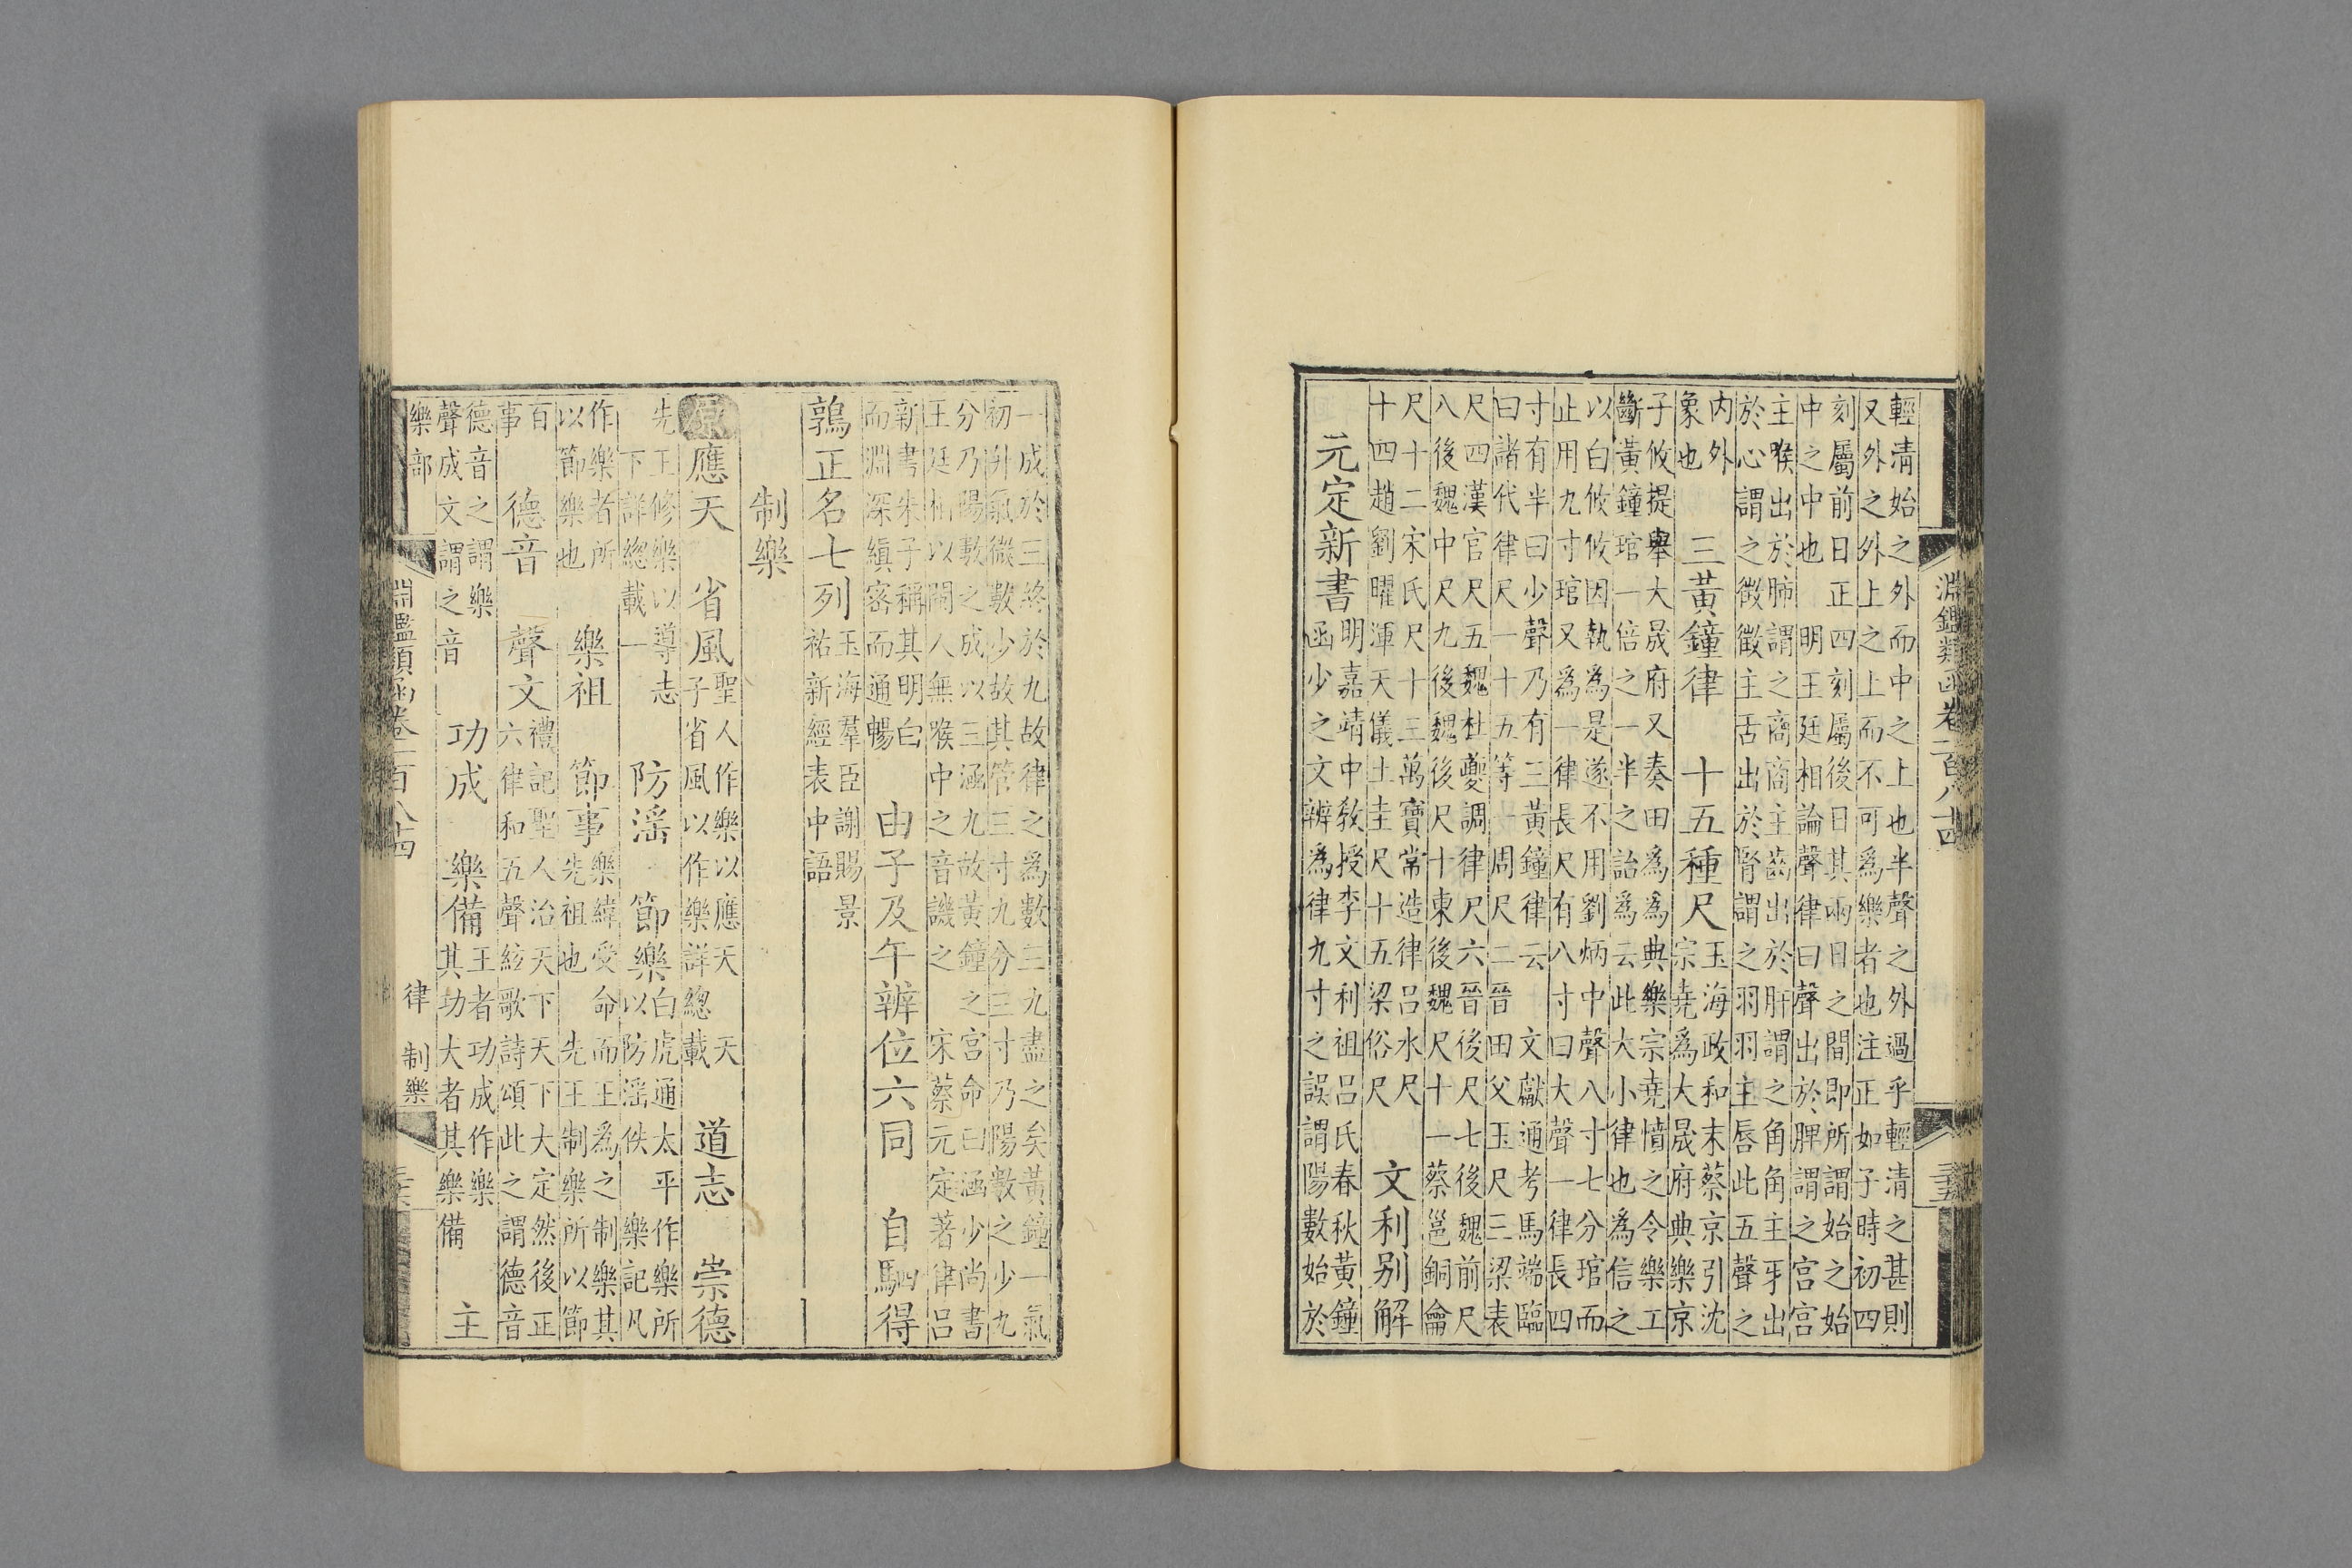 淵鑑類函卷二百八十四 三五
輕清始之外而中之上也半聲之外過乎輕清之甚則
又外之外上之上而不可為樂者也注正如子時初四
刻屬前日正四刻屬後日其兩日之間即所謂始之始
中之中也 明王廷相論聲律曰聲出於脾謂之宮宮
主喉出於肺謂之商商主齒出於肝謂之角角主牙出
於心謂之徵徵主舌出於腎謂之羽羽主唇此五聲之
内外
象也
三黃鐘律 十五種尺
玉海政和末蔡京引沈
宗堯為大晟府典樂京
子攸提舉大晟府又奏田為為典樂宗堯憤之令樂工
斷黃鐘琯一倍之一半之詒為云此大小律也為信之
以白攸攸因執為是遂不用劉炳中聲八寸七分琯而
止用九寸琯又為一律長尺有八寸曰大聲一律長四
寸有半曰少聲乃有三黃鐘律云 文獻通考馬端臨
曰諸代律尺一十五等一周尺二晉田父玉尺三梁表
尺四漢官尺五魏杜夔調律尺六晉後尺七後魏前尺
八後魏中尺九後魏後尺十東後魏尺十一蔡邕銅龠
尺十二宋氏尺十三萬寶常造律呂水尺
十四趙劉曜渾天儀土圭尺十五梁俗尺
文利别解
元定新書
明嘉靖中教授李文利祖呂氏春秋黃鐘
函少之文辨為律九寸之誤謂陽數始於
一成於三終於九故律之為數三九盡之矣黃鐘一氣
初升氣微數少故其管三寸九分三寸乃陽數之少九
分乃陽數之成以三涵九故黃鐘之宮命曰涵少尚書
王廷相以閹人無喉中之音譏之 宋蔡元定著律呂
新書朱子稱其明白
而淵深縝密而通暢
由子及午辨位六同 自駟得
鶉正名七列
玉海羣臣謝賜景
祐新經表中語
制樂
原應天 省風
聖人作樂以應天 天
子省風以作樂詳總載
道志 崇德
先王修樂以導志
下詳總載一
防滛 節樂
白虎通太平作樂所
以防滛佚 樂記凡
作樂者所
以節樂也
樂祖 節事
樂緯受命而王為之制樂其
先祖也 先王制樂所以節
百
事
德音 聲文
禮記聖人治天下天下大定然後正
六律和五聲絃歌詩頌此之謂德音
德音之謂樂
聲成文謂之音
功成 樂備
王者功成作樂
其功大者其樂備
主
樂部 淵鑑類函卷二百八十四 律 制樂